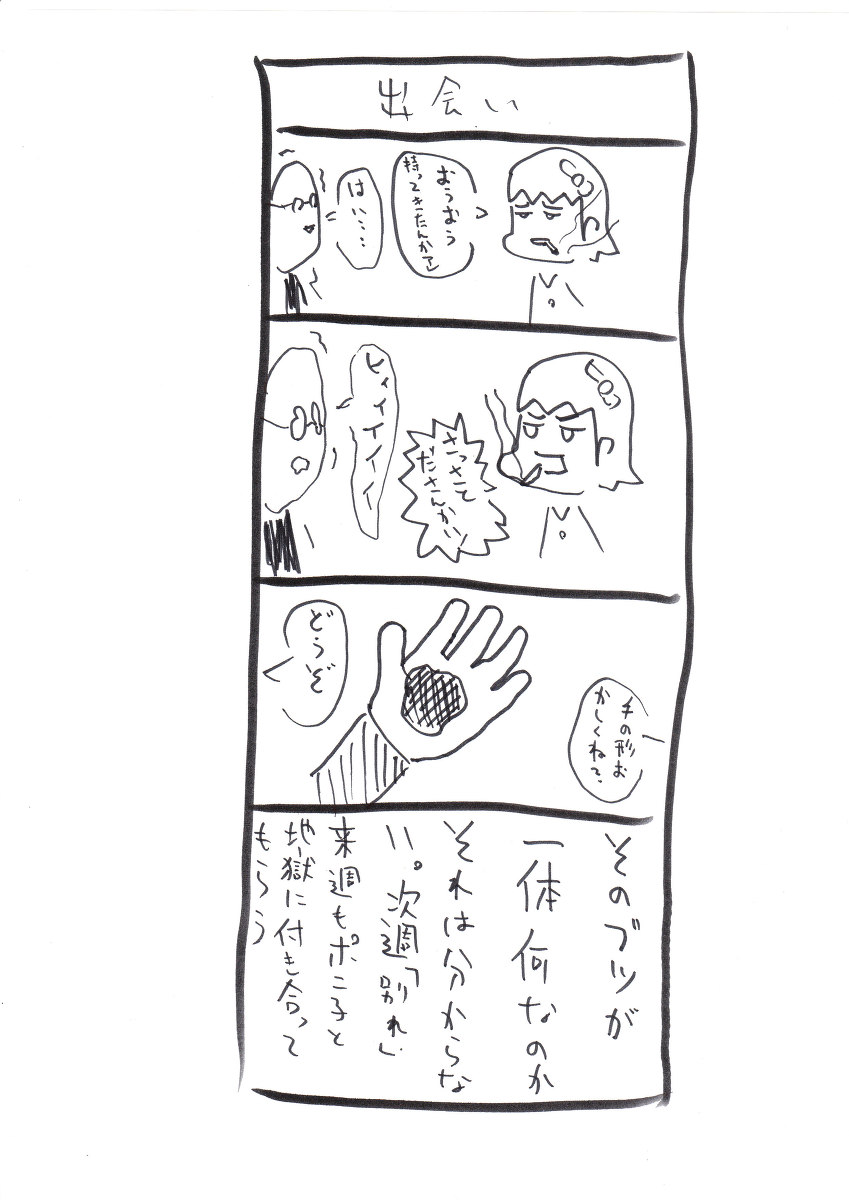 出会い
おうおう
持ってきたんかワレ
はい…
さっさと
ださんかい!
ヒィイイイイ
手の形お
かしくね?
どうぞ
そのブツが
一体何なのか
それは分からな
い。次週「別れ」
来週もポニ子と
地獄に付き合って
もらう